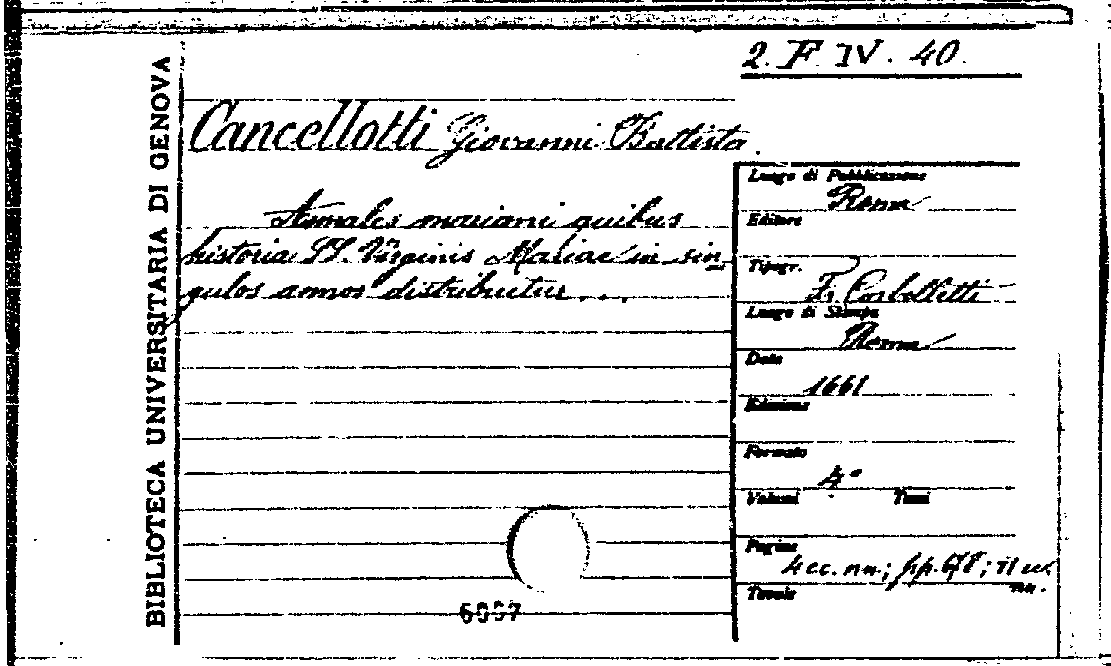 2. F. IV. 40.
BIBLIOTECA UNIVERSITARIA DI GENOVA
Cancellotti Giovanni Battista.
Annales mariani quibus
historia SS. Virginis Mariae in sin-
gulos annos distribuitur...
Luogo di Pubblicazione
Roma
Editore
Tipogr.
F. Corbelletti
Luogo di Stampa
Roma
Data
1661
Edizione
Formato
4°
Volumi Tomi
Pagine
4 cc. nn.; pp. 678; 11 cc.
nn.
Tavole